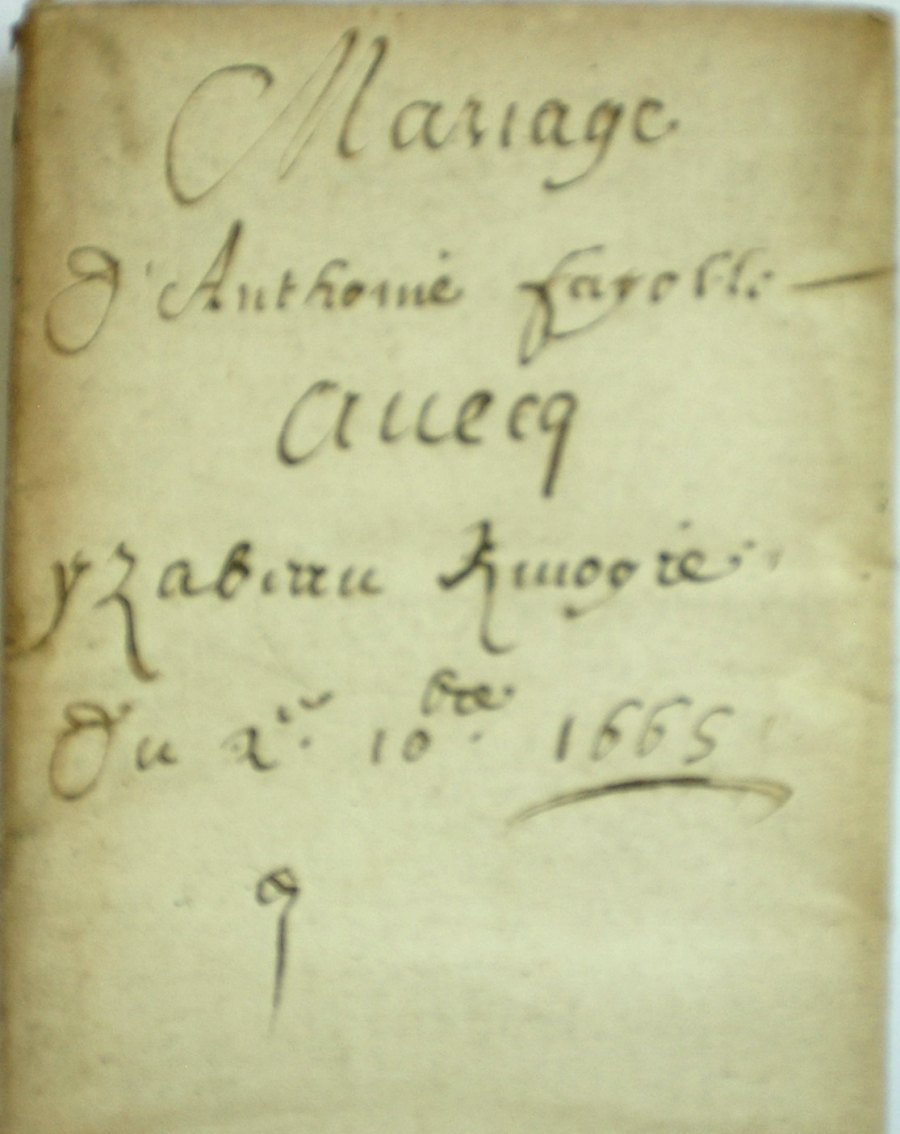 Mariage
d'Anthoine fayolle
auecq
yzabeau
Du 2e 10bre 1665
9